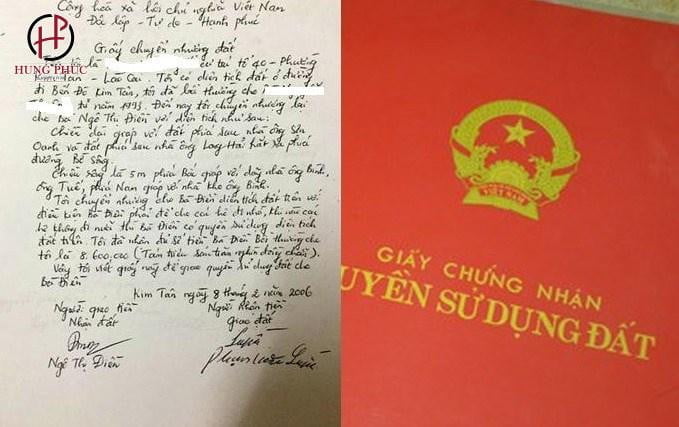 HP
HUNG PHUC
Cộng hoà xã hội chủ nghĩa Việt Nam
Độc lập - Tự do - Hạnh phúc
Giấy chuyển nhượng đất
tại tổ 40 - Phường
Tân - Lào Cai. Tôi có diện tích đất ở đường
đi Bến Đò Kim Tân, tôi đã bồi thường cho
từ năm 1993. Đến nay tôi chuyển nhượng lại
cho bà Ngô Thị Điền với diện tích như sau:
Chiều dài giáp với đất phía sau nhà ông Sên
Oanh và đất phía sau nhà ông Long Hải hắt ra phía
đường Bờ Sông.
Chiều rộng là 5m phía Bắc giáp với dãy nhà ông Bình,
ông Tuế, phía Nam giáp với nhà kho ông Bình.
Tôi chuyển nhượng cho Bà Điền diện tích đất trên với
điều kiện Bà Điền phải để cho các hộ đi nhờ, khi nào các
hộ không đi nữa thì Bà Điền có quyền sử dụng diện tích
đất trên. Tôi đã nhận đủ số tiền Bà Điền Bồi thường cho
tôi là 8.600.000 (Tám triệu sáu trăm nghìn đồng chẵn).
Vậy tôi viết giấy này để giao quyền sử dụng đất cho
Bà Điền
Kim Tân ngày 8 tháng 2 năm 2006
Người giao tiền Người nhận tiền
Nhận đất giao đất
Ngô Thị Điền
GIẤY CHỨNG NHẬN
UYỀN SỬ DỤNG ĐẤT